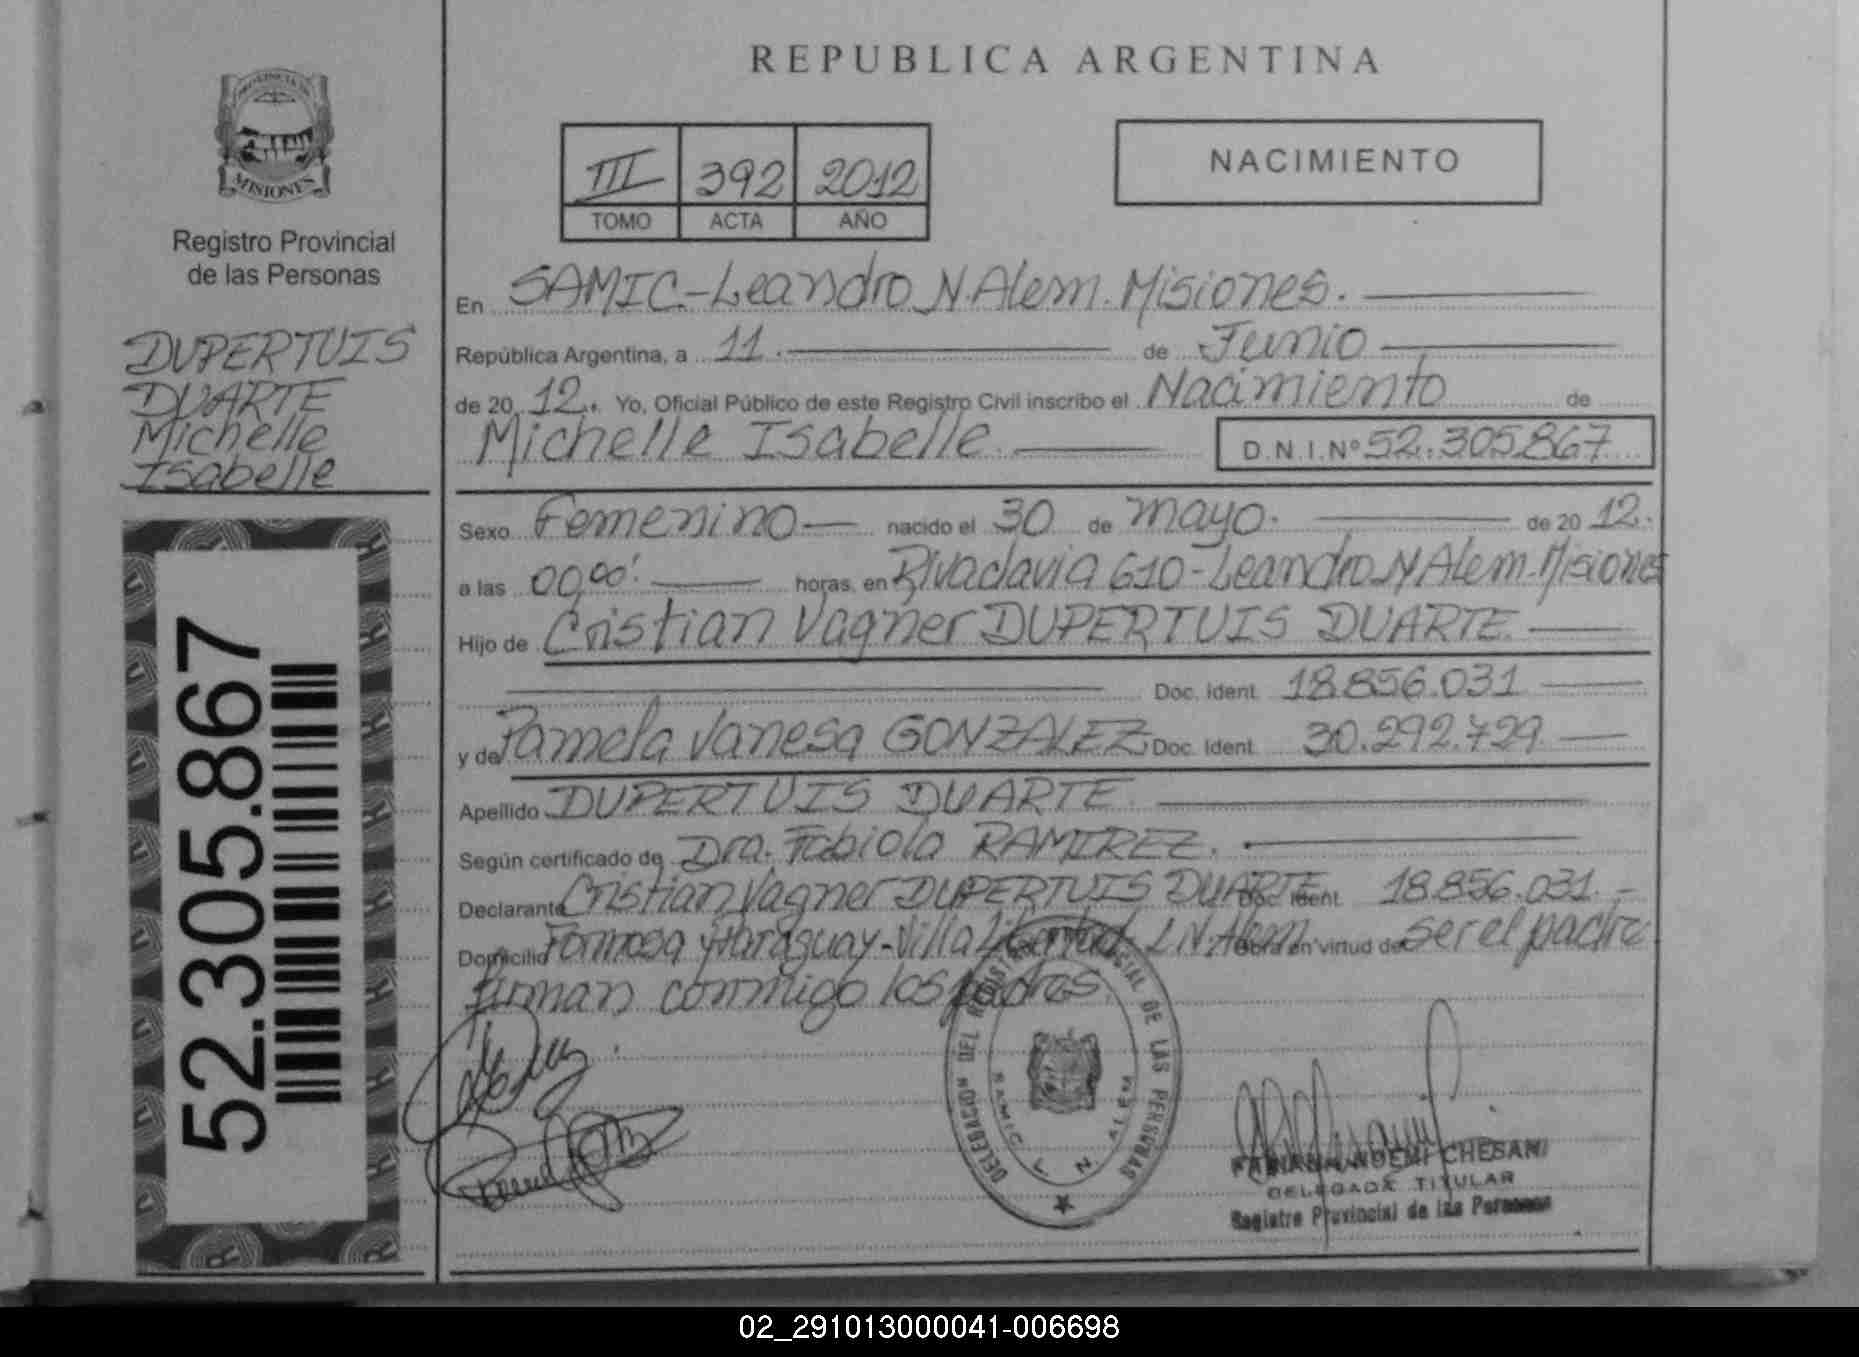 REPUBLICA ARGENTINA
PROVINCIA DE
MISIONES
Registro Provincial
de las Personas
DUPERTUIS
DUARTE
Michelle
Isabelle
52.305.867
III 392 2012
TOMO ACTA AÑO
NACIMIENTO
En SAMIC-Leandro N. Alem. Misiones.
República Argentina, a 11. de Junio
de 20 12. Yo, Oficial Público de este Registro Civil inscribo el Nacimiento de
Michelle Isabelle. D.N.I.Nº 52.305.867
Sexo Femenino nacido el 30 de mayo. de 20 12.
a las 00,00'. horas, en Rivadavia 610-Leandro N Alem-Misiones
Hijo de Cristian Vagner DUPERTUIS DUARTE.
Doc. Ident 18.856.031
y de Pamela Vanesa GONZALEZ Doc. Ident 30.292.729
Apellido DUPERTUIS DUARTE.
Según certificado de Dra. Fabiola RAMIREZ.
Declarante Cristian Vagner DUPERTUIS DUARTE Doc. Ident 18.856.031.
Domicilio Formosa y Paraguay-Villa Libertad L.N. Alem Obra en virtud de ser el padre
firman conmigo los padres.
DELEGACION DEL REGISTRO PROVINCIAL DE LAS PERSONAS
SAMIC L N ALEM
FABIANA NOEMI CHESANI
DELEGADA TITULAR
Registro Provincial de las Personas
02_291013000041-006698